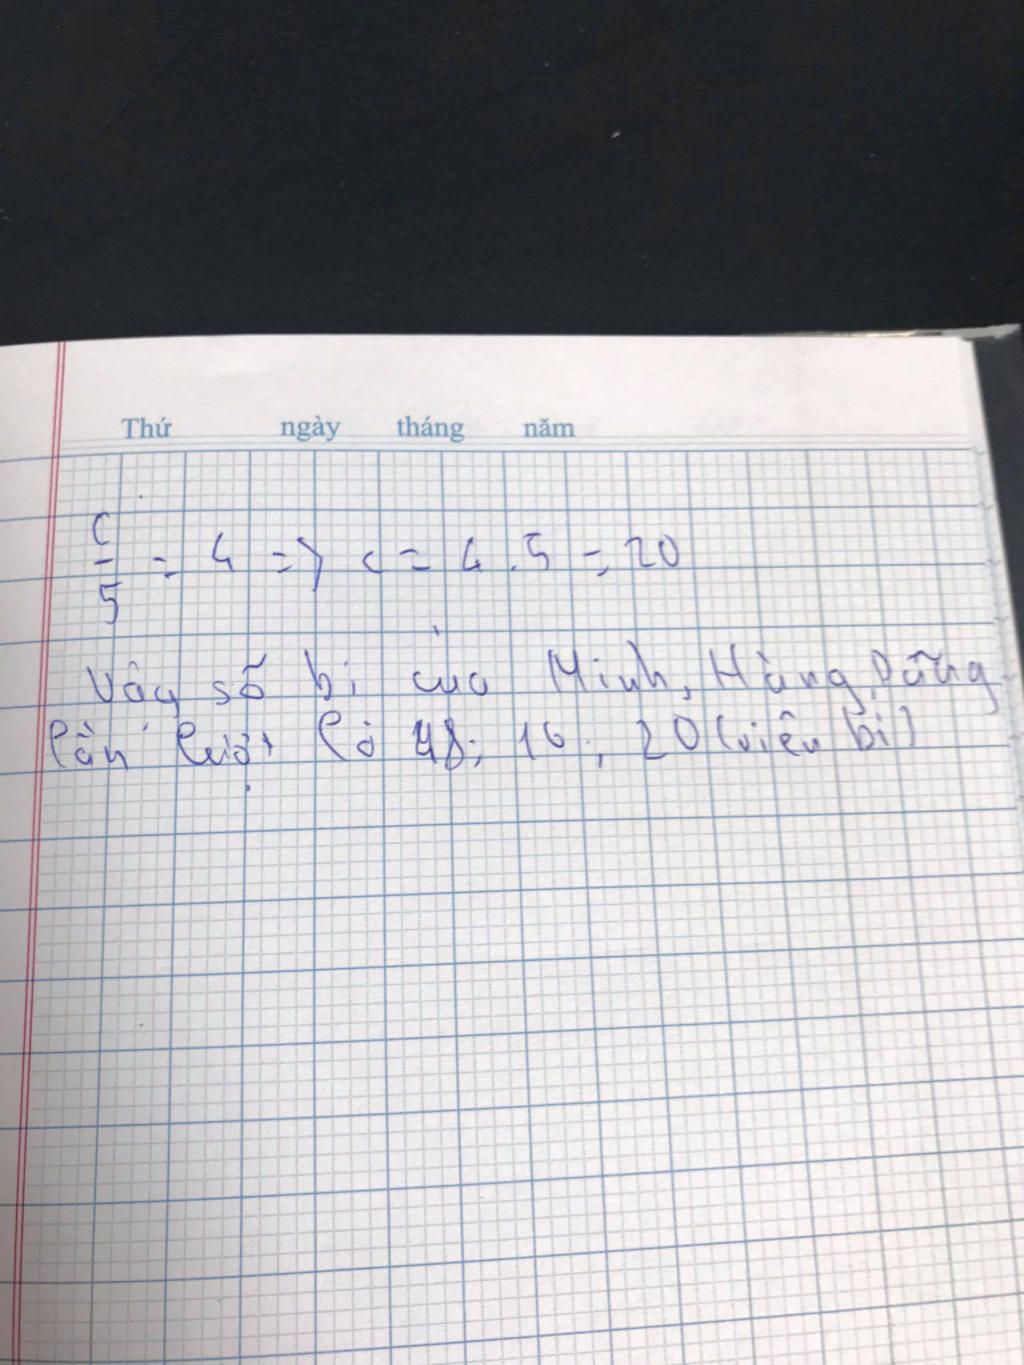 Thứ ngày tháng năm
c/5 = 4 => c = 4.5 = 20
Vậy số bi của Minh, Hùng, Dũng
lần lượt là 48; 16; 20 (viên bi)